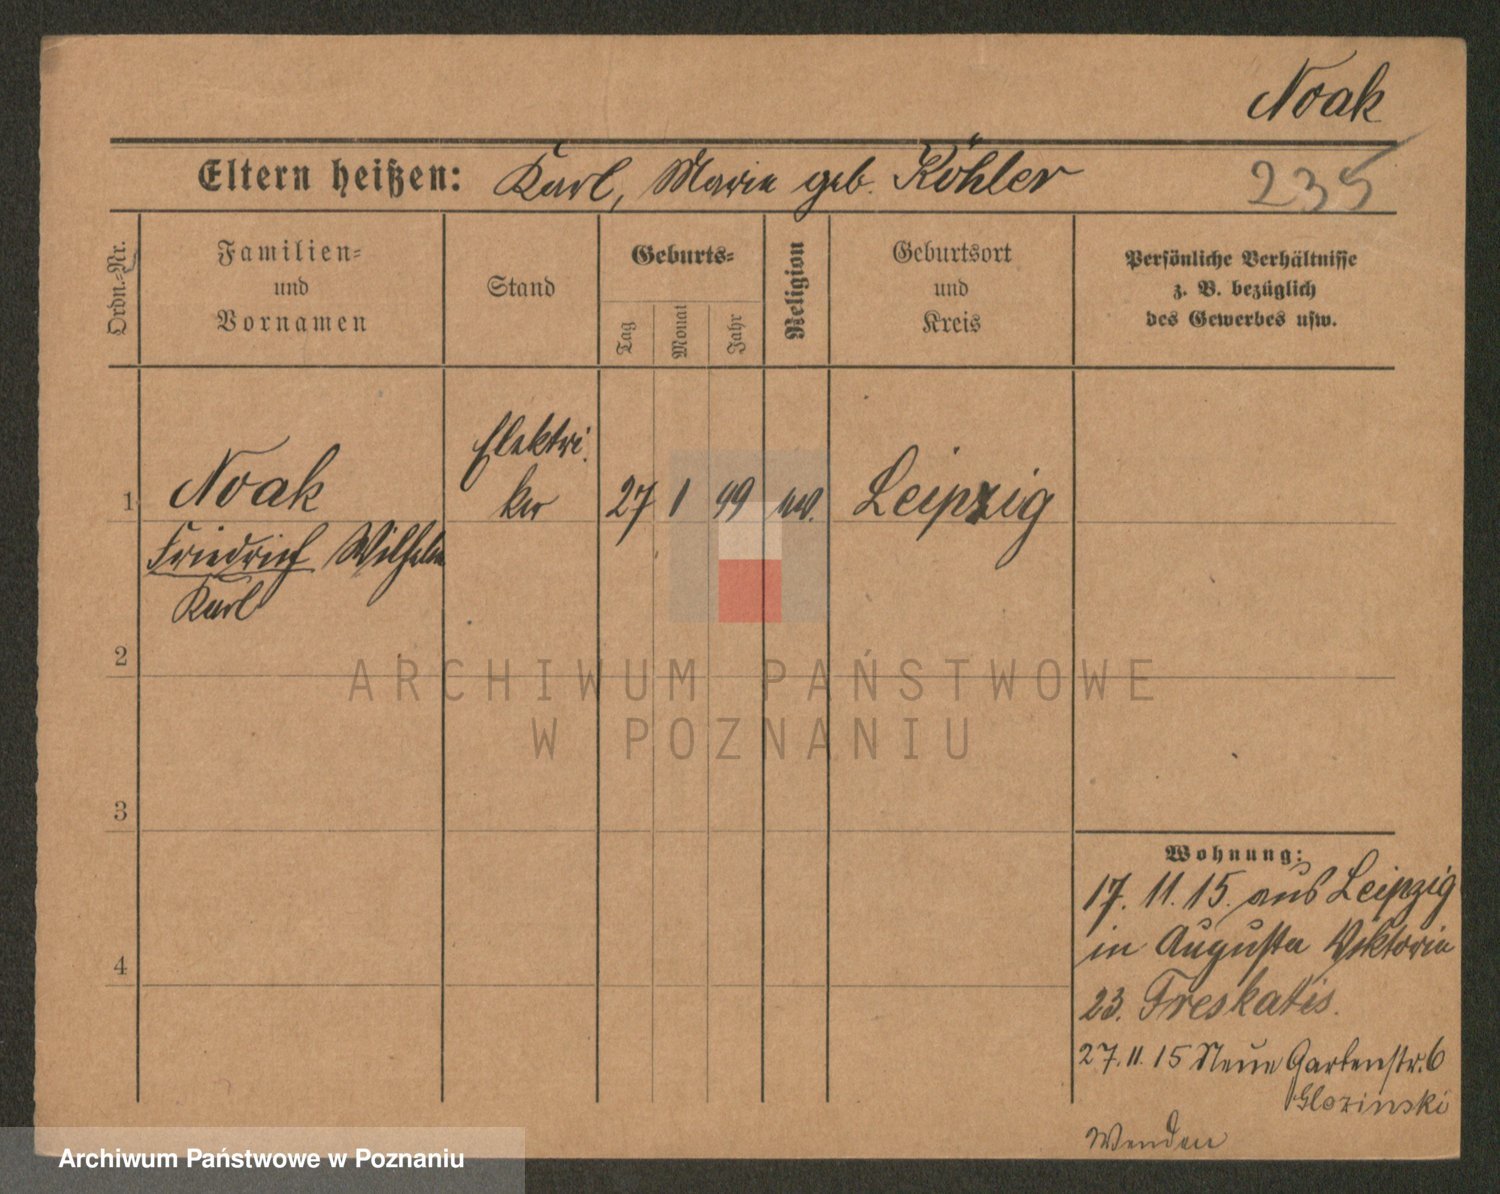 Noak
Eltern heißen: Karl, Marie geb. Köhler
235
Ordn.-Nr.
Familien-
und
Vornamen
Stand
Geburts-
Tag
Monat
Jahr
Religion
Geburtsort
und
Kreis
Persönliche Verhältnisse
z. B. bezüglich
des Gewerbes usw.
Elektri-
1 Noak ker 27 1 99 ev. Leipzig
Friedrich Wilhelm
Karl
2
ARCHIWUM PAŃSTWOWE
W POZNANIU
3
Wohnung:
17. 11. 15. aus Leipzig
in Augusta Viktoria
23. Freskatis.
4
27. 11. 15 Neue Gartenstr. 6
Glozinski
Wenden
Archiwum Państwowe w Poznaniu